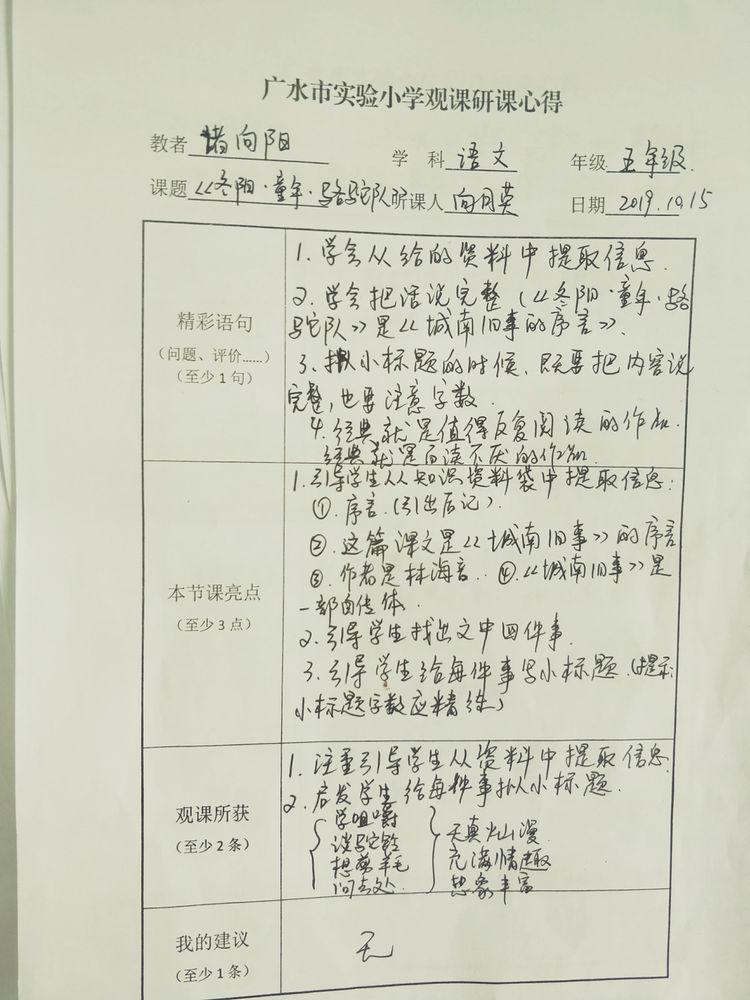 广水市实验小学观课研课心得
教者 褚向阳 学 科 语文 年级 五年级
课题 《冬阳·童年·骆驼队》听课人 向月英 日期 2019.10.15
精彩语句
(问题、评价……)
(至少1句)
1. 学会从给的资料中提取信息.
2. 学会把话说完整(《冬阳·童年·骆
驼队》是《城南旧事的序言》.
3. 拟小标题的时候, 既要把内容说
完整, 也要注意字数.
4. 经典就是值得反复阅读的作品.
经典就是百读不厌的作品.
本节课亮点
(至少3点)
1. 引导学生从知识资料袋中提取信息:
①. 序言. (引出后记).
②. 这篇课文是《城南旧事》的序言
③. 作者是林海音. ④.《城南旧事》是
一部自传体.
2. 引导学生找出文中四件事.
3. 引导学生给每件事写小标题. (提示:
小标题字数应精练)
观课所获
(至少2条)
1. 注重引导学生从资料中提取信息.
2. 启发学生给每件事拟小标题.
学咀嚼
谈驼铃
想剪羊毛
问去处.
天真烂漫
充满情趣
想象丰富
我的建议
(至少1条)
无